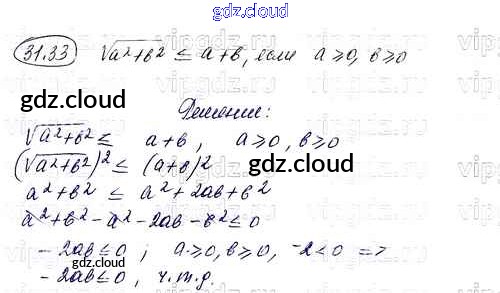 gdz.cloud
31.33 √a²+b² ≤ a+b, если a≥0, b≥0
gdz.cloud
Решение:
√a²+b² ≤ a+b, a≥0, b≥0
(√a²+b²)² ≤ (a+b)²
gdz.cloud
a²+b² ≤ a²+2ab+b²
a²+b²-a²-2ab-b²≤0
-2ab≤0; a≥0, b≥0, -2<0 =>
-2ab≤0, ч.т.д.
gdz.cloud